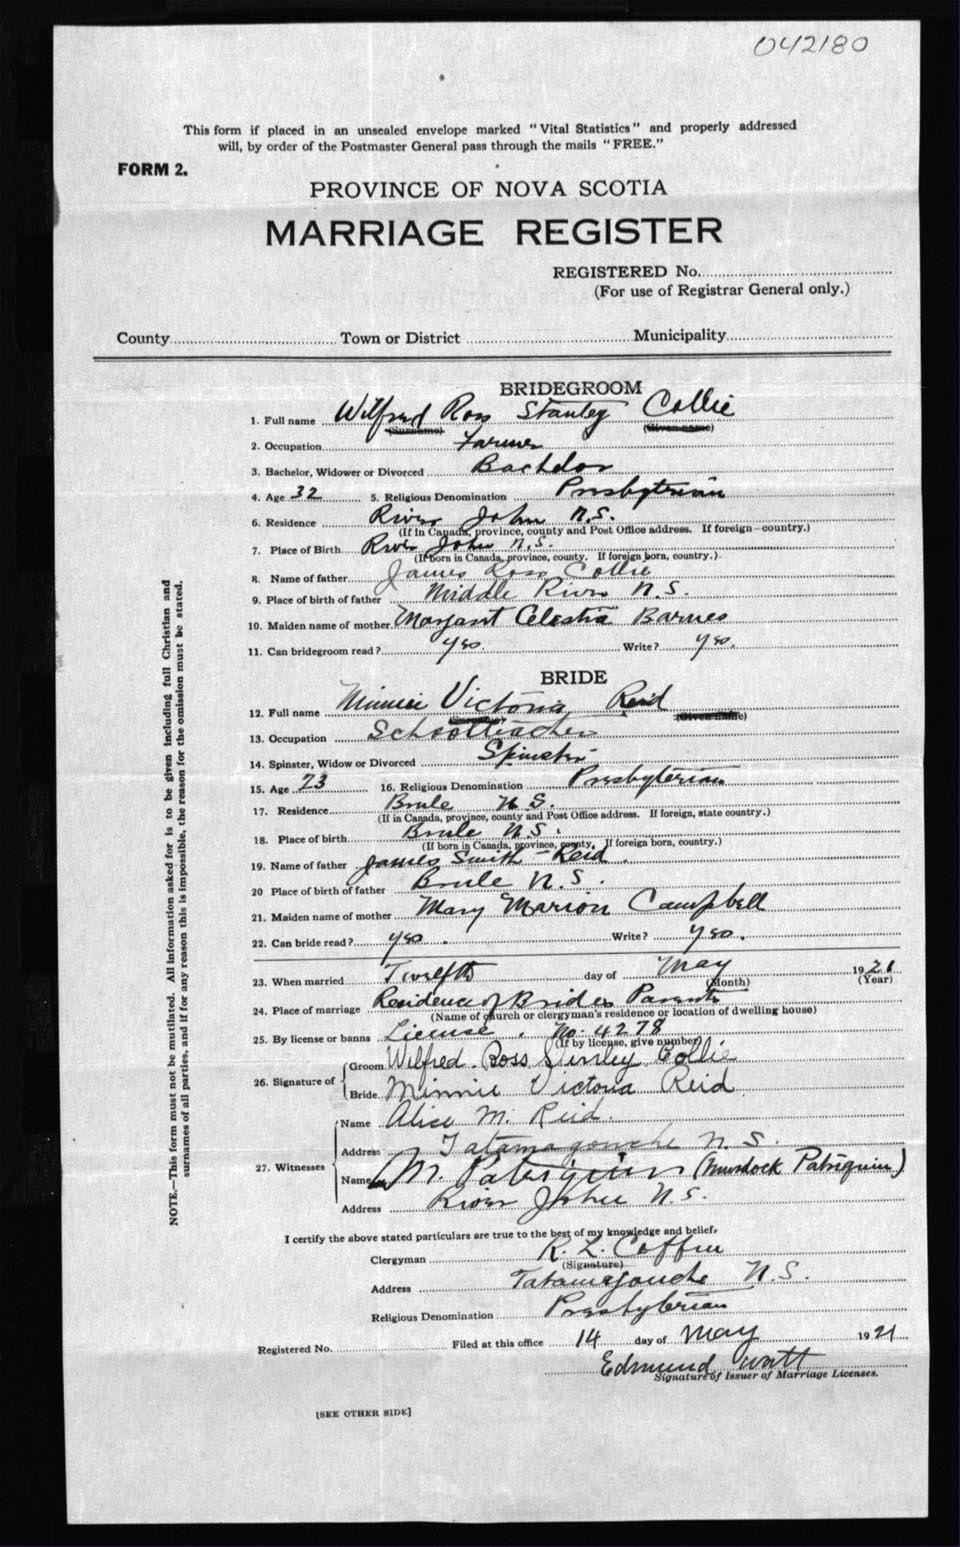 042180
This form if placed in an unsealed envelope marked "Vital Statistics" and properly addressed
will, by order of the Postmaster General pass through the mails "FREE."
FORM 2.
PROVINCE OF NOVA SCOTIA
MARRIAGE REGISTER
REGISTERED No.
(For use of Registrar General only.)
County Town or District Municipality
BRIDEGROOM
1. Full name Wilfred Ross Stanley Collie
(Surname) (Given name)
2. Occupation Farmer
3. Bachelor, Widower or Divorced Bachelor
4. Age 32 5. Religious Denomination Presbyterian
6. Residence River John N.S.
(If in Canada, province, county and Post Office address. If foreign—country.)
7. Place of Birth River John N.S.
(If born in Canada, province, county. If foreign born, country.)
8. Name of father James Ross Collie
9. Place of birth of father Middle River N.S.
10. Maiden name of mother Margaret Celestia Barnes
11. Can bridegroom read? yes. Write? yes.
BRIDE
12. Full name Minnie Victoria Reid
(Surname) (Given name)
13. Occupation Schoolteacher
14. Spinster, Widow or Divorced Spinster
15. Age 23 16. Religious Denomination Presbyterian
17. Residence Brule N.S.
(If in Canada, province, county and Post Office address. If foreign, state country.)
18. Place of birth Brule N.S.
(If born in Canada, province, county. If foreign born, country.)
19. Name of father James Smith Reid.
20 Place of birth of father Brule N.S.
21. Maiden name of mother Mary Marion Campbell
22. Can bride read? yes. Write? yes.
23. When married Twelfth day of May 1921
(Month) (Year)
24. Place of marriage Residence of Brides Parents
(Name of church or clergyman's residence or location of dwelling house)
25. By license or banns License. No. 4278
(If by license, give number)
26. Signature of Groom Wilfred Ross Stanley Collie
Bride Minnie Victoria Reid
27. Witnesses Name Alice M. Reid.
Address Tatamagouche N.S.
Name M. Patriquin (Murdock Patriquin)
Address River John N.S.
I certify the above stated particulars are true to the best of my knowledge and belief,
Clergyman R. L. Coffin
(Signature)
Address Tatamagouche N.S.
Religious Denomination Presbyterian
Registered No. Filed at this office 14 day of May 1921
Edmund Watt
Signature of Issuer of Marriage Licenses.
[SEE OTHER SIDE]
NOTE.—This form must not be mutilated. All information asked for is to be given including full Christian and
surnames of all parties, and if for any reason this is impossible, the reason for the omission must be stated.